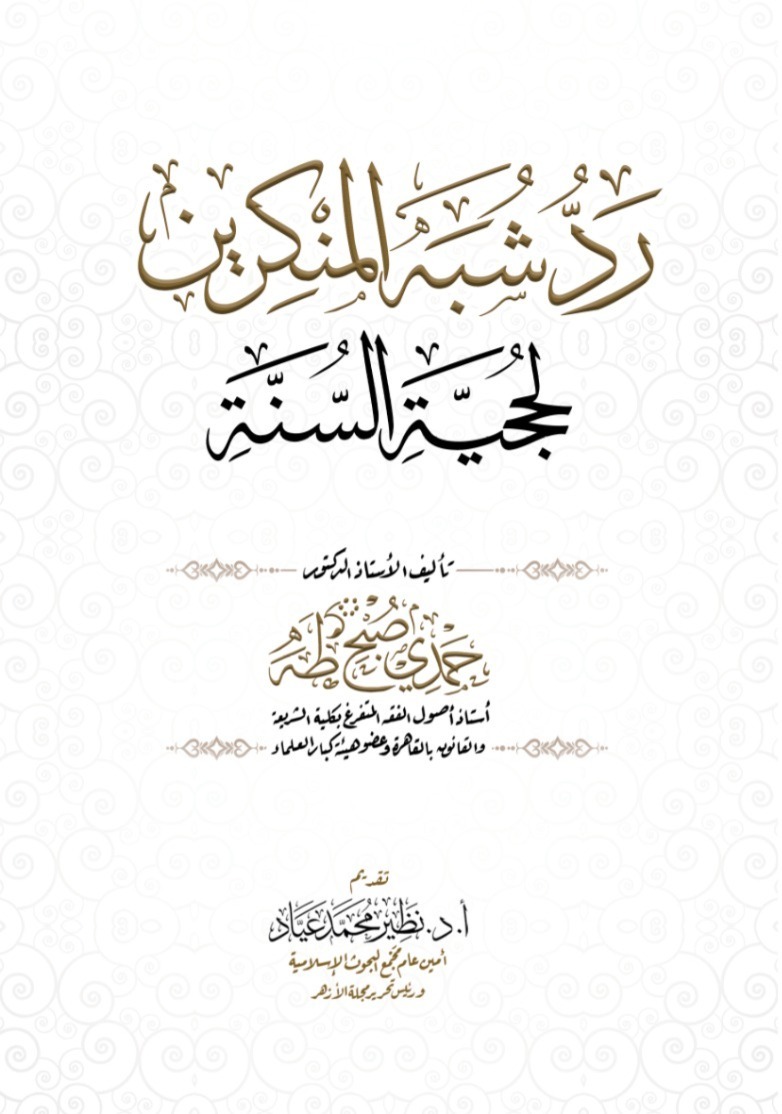 رَدُّ شُبَهِ المُنْكِرِين
لحُجِّيَّةِ السُّنَّةِ
تأليف الأستاذ الدكتور
حَمْدِي صُبْح طَهَ
أستاذ أصول الفقه المتفرغ بكلية الشريعة
والقانون بالقاهرة وعضو هيئة كبار العلماء
تقديم
أ.د. نَظِير مُحَمَّد عَيَّاد
أمين عام مجمع البحوث الإسلامية
ورئيس تحرير مجلة الأزهر